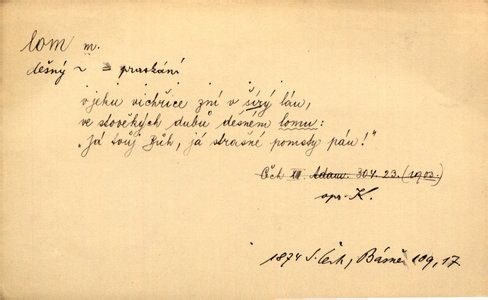 lom m.
děsný ~ = praskání
v jeku vichřice zní v šírý lán,
ve stověkých dubů děsném lomu:
„Já tvůj Bůh, já strašné pomsty pán!"
Čch III Adam. 304.23. (1903)
opr. K.
1874 S. Čech, Básně 109,17